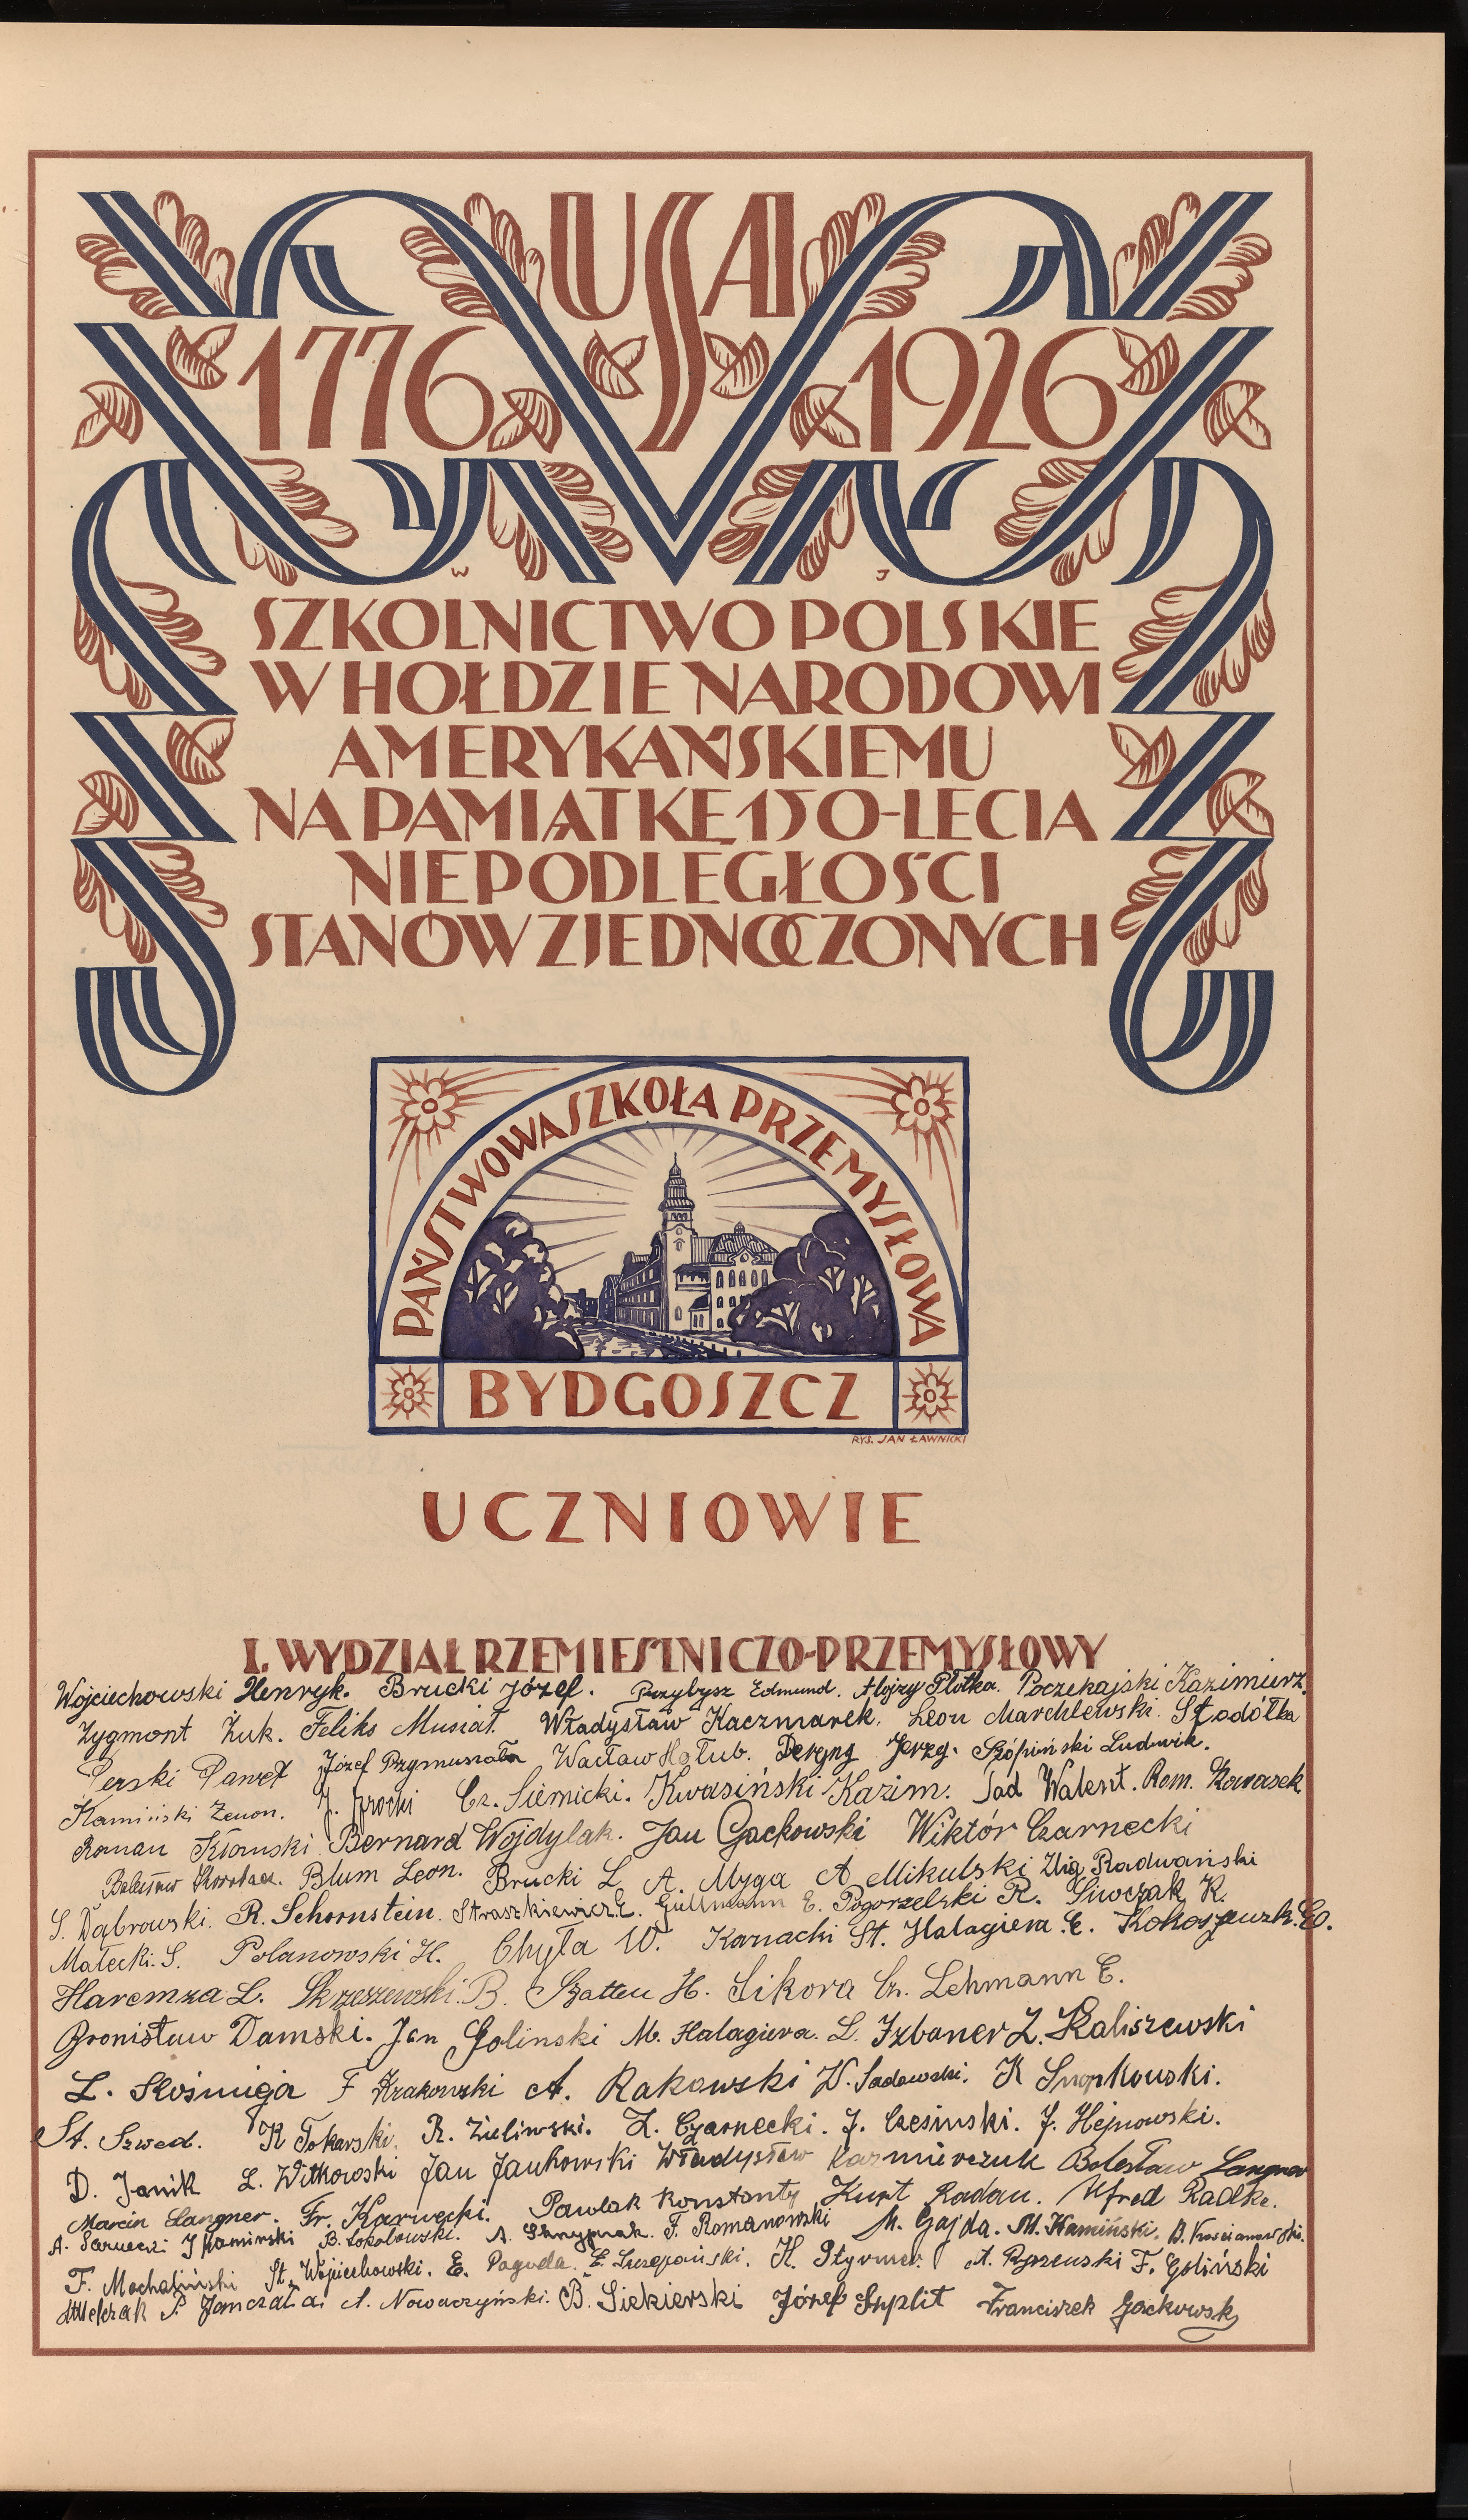 USA
1776 1926
W J
SZKOLNICTWO POLSKIE
W HOŁDZIE NARODOWI
AMERYKAŃSKIEMU
NA PAMIĄTKĘ 150-LECIA
NIEPODLEGŁOŚCI
STANÓW ZJEDNOCZONYCH
PAŃSTWOWA SZKOŁA PRZEMYSŁOWA
BYDGOSZCZ
RYS. JAN ŁAWNICKI
UCZNIOWIE
I. WYDZIAŁ RZEMIEŚLNICZO-PRZEMYSŁOWY
Wojciechowski Henryk. Brucki Józef. Przybysz Edmund. Alojzy Plotka. Poczekajski Kazimierz.
Zygmont Żuk. Feliks Musiał. Władysław Kaczmarek. Leon Marchlewski.
Perski Paweł Józef Przymuszała Wacław Hołub. Jerzy. Ludwik.
Kamiński Zenon. Cz. Siemicki. Kwasiński Kazim. Sad Walent. Rom. Karasek
Roman Bernard Wojdylak. Jan Gackowski Wiktór Czarnecki
Blum Leon. Brucki L. A. Myga A Mikulski Radwański
S. Dąbrowski. R. Schornstein. Straszkiewicz E. Gullmann E. Pogorzelski R. Siwczak K.
Małecki. S. Polanowski H. Chyła W. Karnacki St. Halagiera E.
Haremza L. Skrzeszewski. B. Szatten H. Sikora Cz. Lehmann E.
Bronisław Damski. Jan Golinski M. Halagiera. L. Izbaner Z. Kaliszewski
L. Kośmiga F Krakowski A. Rakowski W. Sadowski. K Snopkowski.
St. Szwed. K Tokarski. R. Zieliwski. Z. Czarnecki. J. Czesinski. J. Hejnowski.
D. Janik L. Witkowski Jan Jankowski Władysław Kazmierczuk Bolesław Langner
Marcin Langner. Fr. Karwecki. Pawlak Konstanty Kurt Radau. Alfred Radke.
A. J Kamiński B. Sokołowski. A. Skrzypnak. F. Romanowski M. Gajda. M. Kamiński.
F. Machaliński St. Wojciechowski. E. Pagoda. E. Szczepański. H. A. F. Goliński
P. Janczała. A. Nowaczyński. B. Siekierski Józef Suplit Franciszek Gackowski